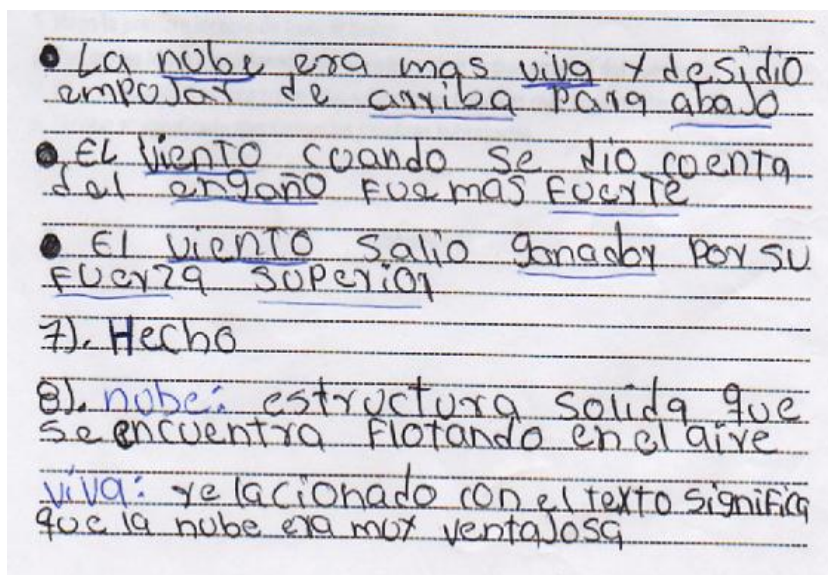 ● La nube era mas viva y desidio
empujar de arriba para abajo
● El viento cuando se dio cuenta
del engaño fue mas fuerte
● El viento salio ganador por su
fuerza superior
7). Hecho
8). nube: estructura solida que
se encuentra flotando en el aire
viva: relacionado con el texto significa
que la nube era muy ventajosa